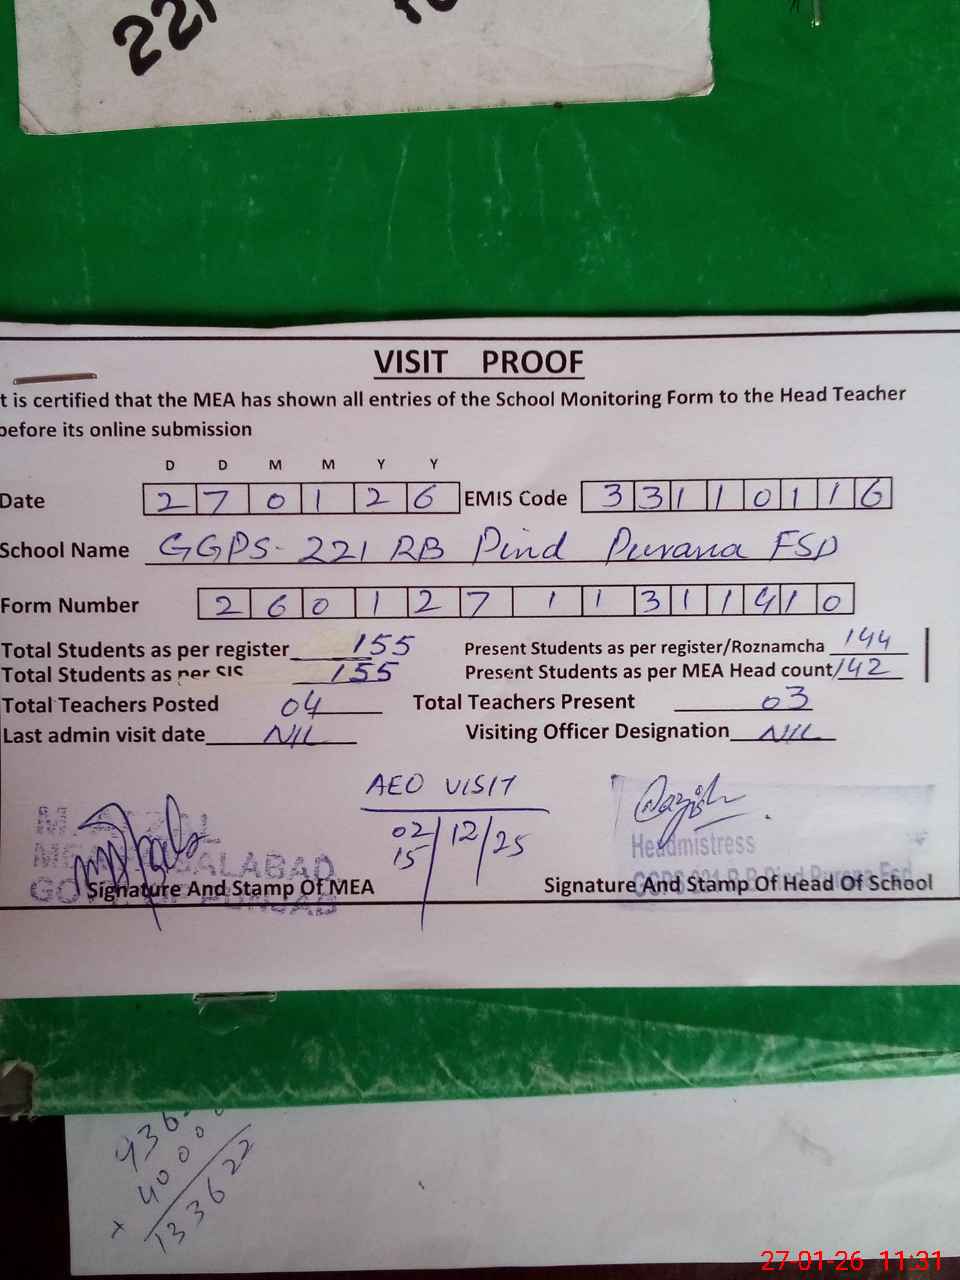 221
VISIT PROOF
t is certified that the MEA has shown all entries of the School Monitoring Form to the Head Teacher
before its online submission
D D M M Y Y
Date 2 7 0 1 2 6 EMIS Code 3 3 1 1 0 1 1 6
School Name GGPS- 221 RB Pind Purana FSD
Form Number 2 6 0 1 2 7 1 1 3 1 1 4 1 0
Total Students as per register 155 Present Students as per register/Roznamcha 144
Total Students as per SIS 155 Present Students as per MEA Head count 142
Total Teachers Posted 04 Total Teachers Present 03
Last admin visit date NIL Visiting Officer Designation NIL
AEO VISIT
02/12/25
15
Headmistress
Signature And Stamp Of MEA Signature And Stamp Of Head Of School
936
40000
x 133622
27-01-26 11:31